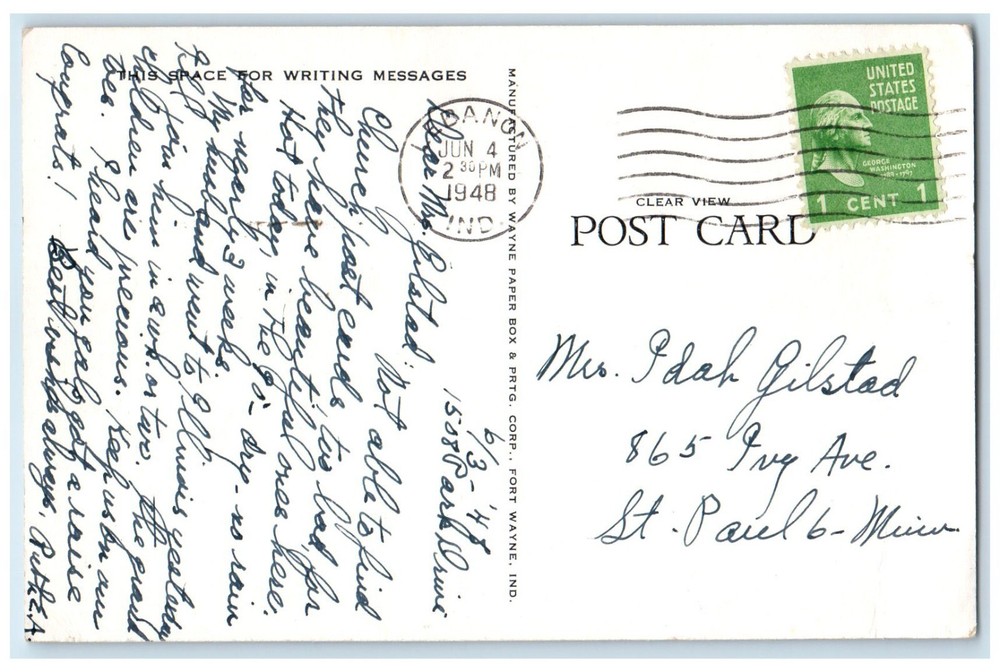 THIS SPACE FOR WRITING MESSAGES
6/3-'48
1508 Park Drive
Dear Mrs. Gilstad: Not able to find
Church post cards, too bad for
they have beautiful ones here.
Hot today, in the 90's- dry - no rain
for nearly 3 weeks.
My husband went to Illinois yesterday
I'll join him in a wk. or two. The grand
children are precious. Keep us on our
toes. I heard your gals got a raise
Congrats! Best wishes always, Ruth E.A.
MANUFACTURED BY WAYNE PAPER BOX & PRTG. CORP., FORT WAYNE, IND.
LEBANON
JUN 4
2 30 PM
1948
IND.
UNITED
STATES
POSTAGE
GEORGE
WASHINGTON
1 CENT 1
CLEAR VIEW
POST CARD
Mrs. Idah Gilstad
865 Ivy Ave.
St. Paul 6- Minn.